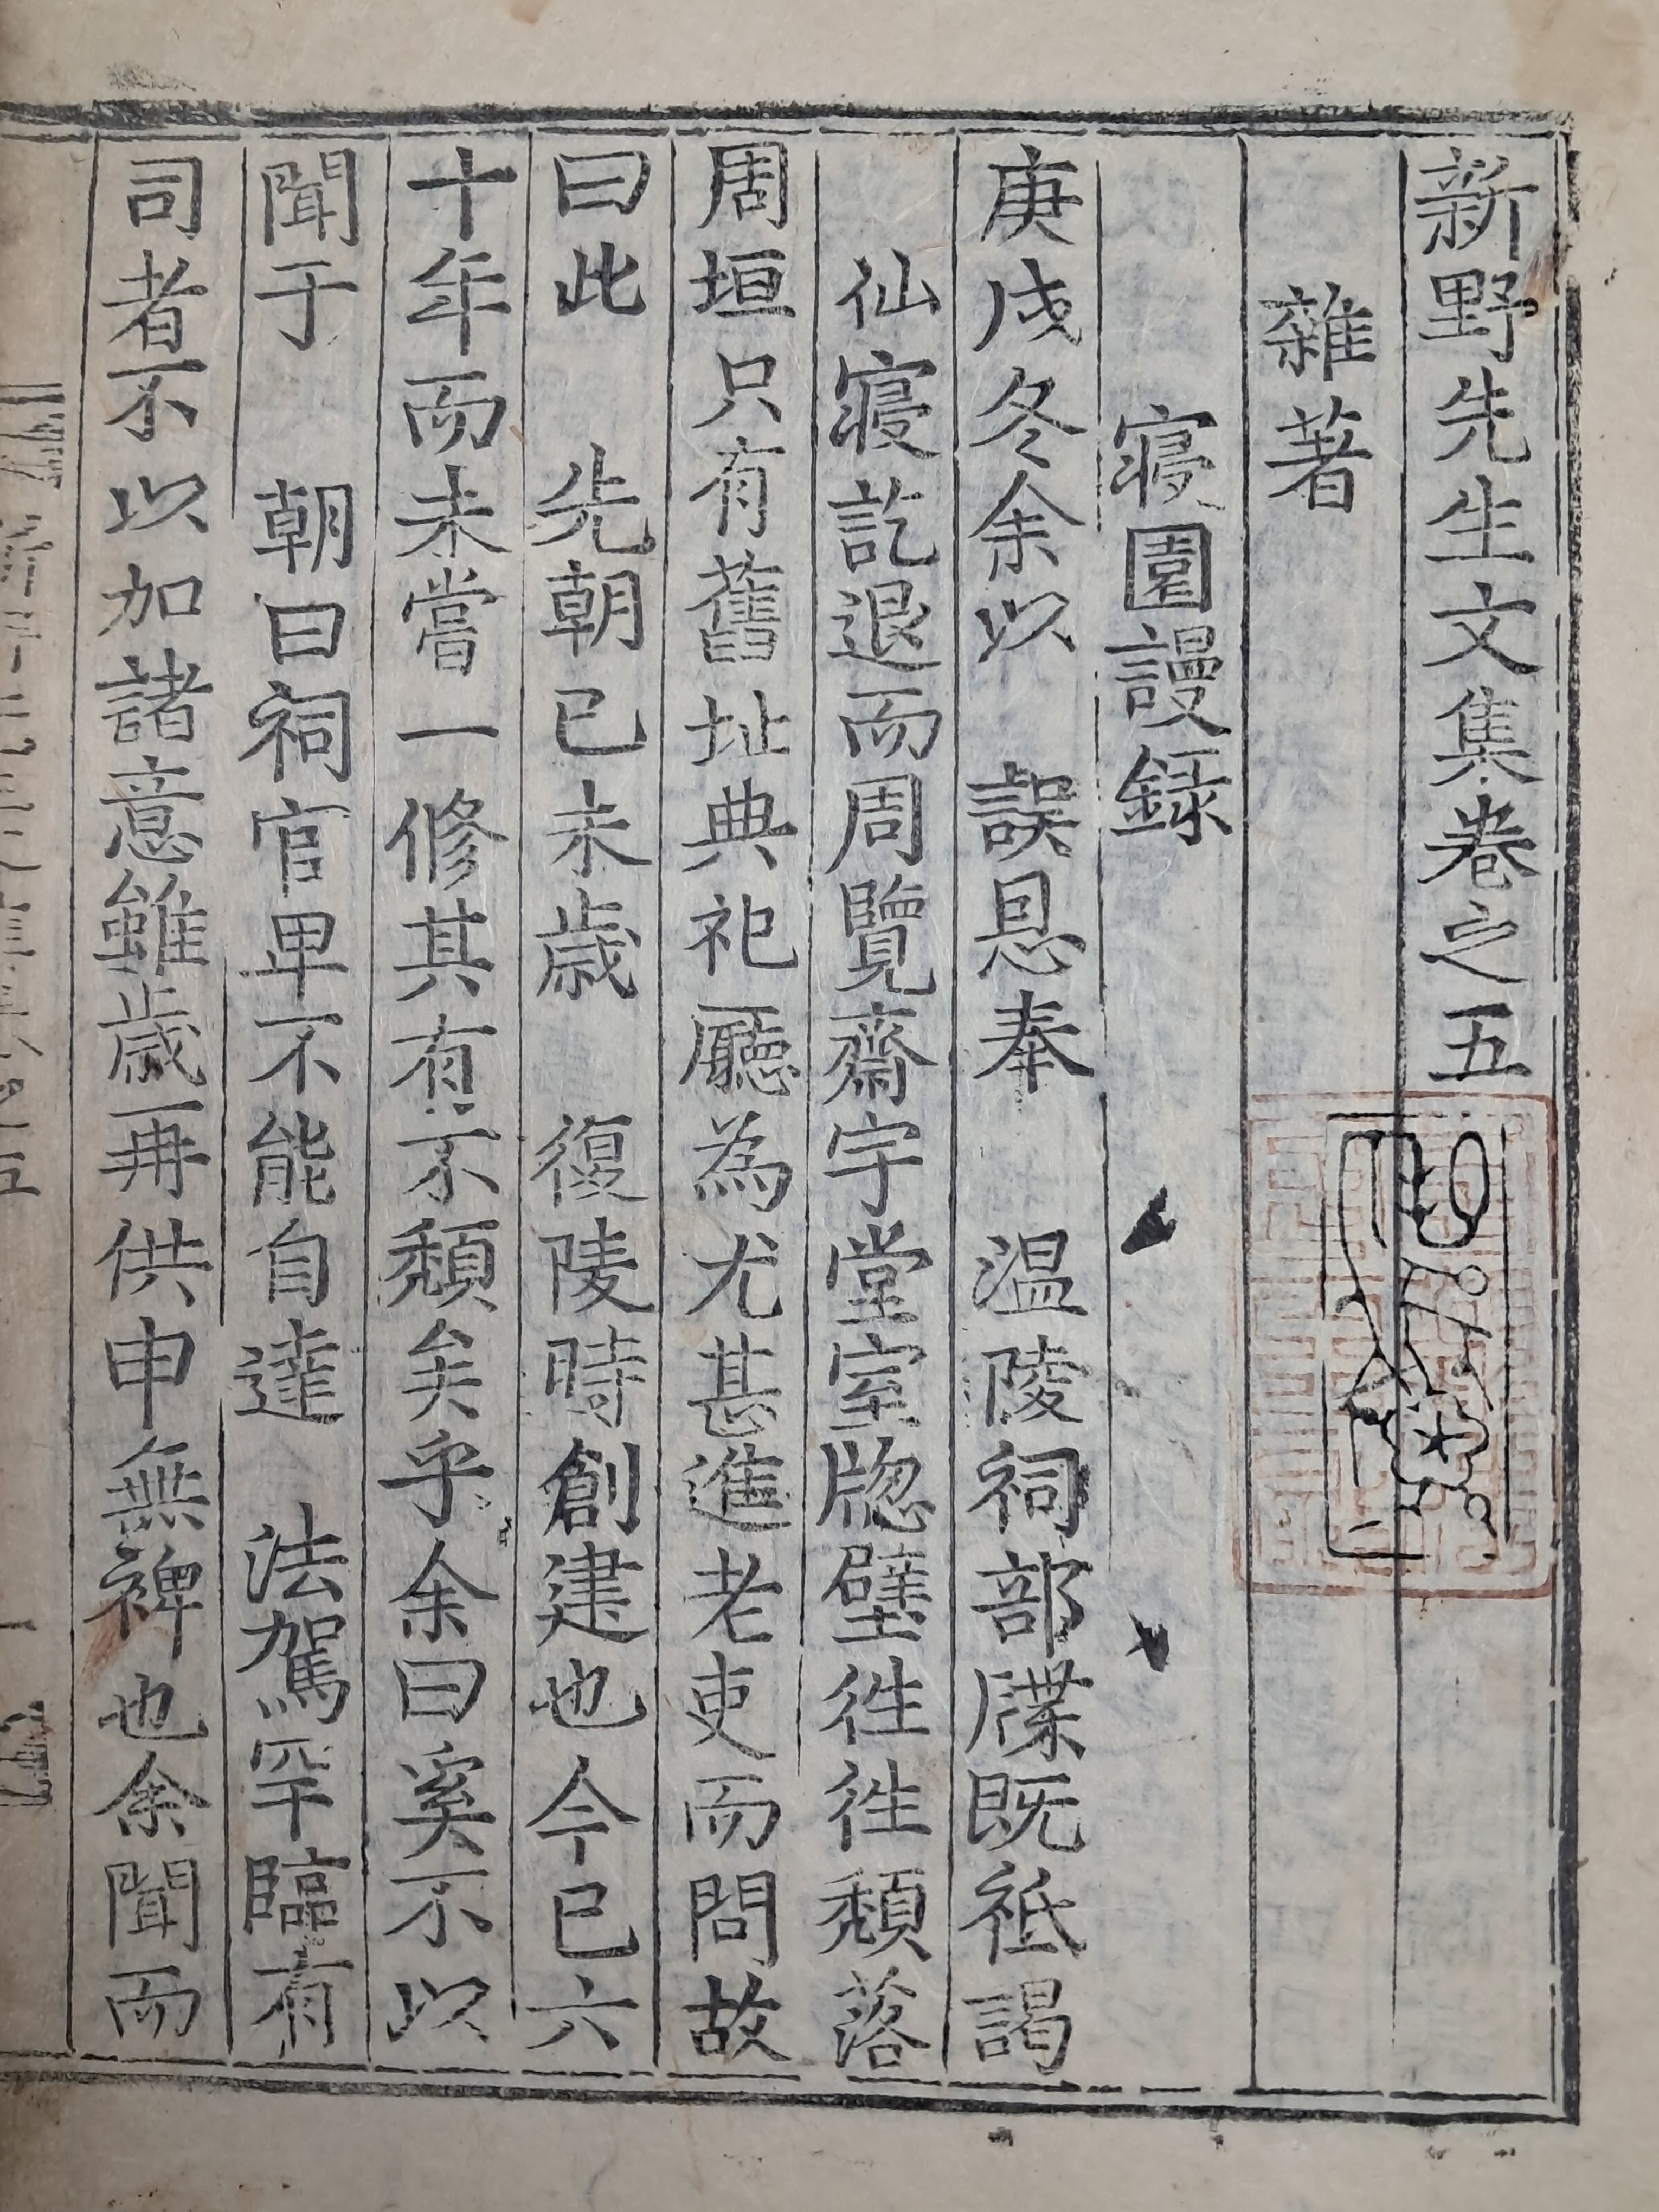 新野先生文集卷之五
雜著
寢園謾録
庚戌冬余以 誤恩奉 温陵祠部牒既祗謁
仙寢訖退而周覽齋宇堂室牕壁徃徃頹落
周垣只有舊址典祀廳為尤甚進老吏而問故
曰此 先朝己未歲 復陵時創建也今已六
十年而未嘗一修其有不頹矣乎余曰奚不以
聞于 朝曰祠官卑不能自達 法駕罕臨有
司者不以加諸意雖歲再供申無裨也余聞而